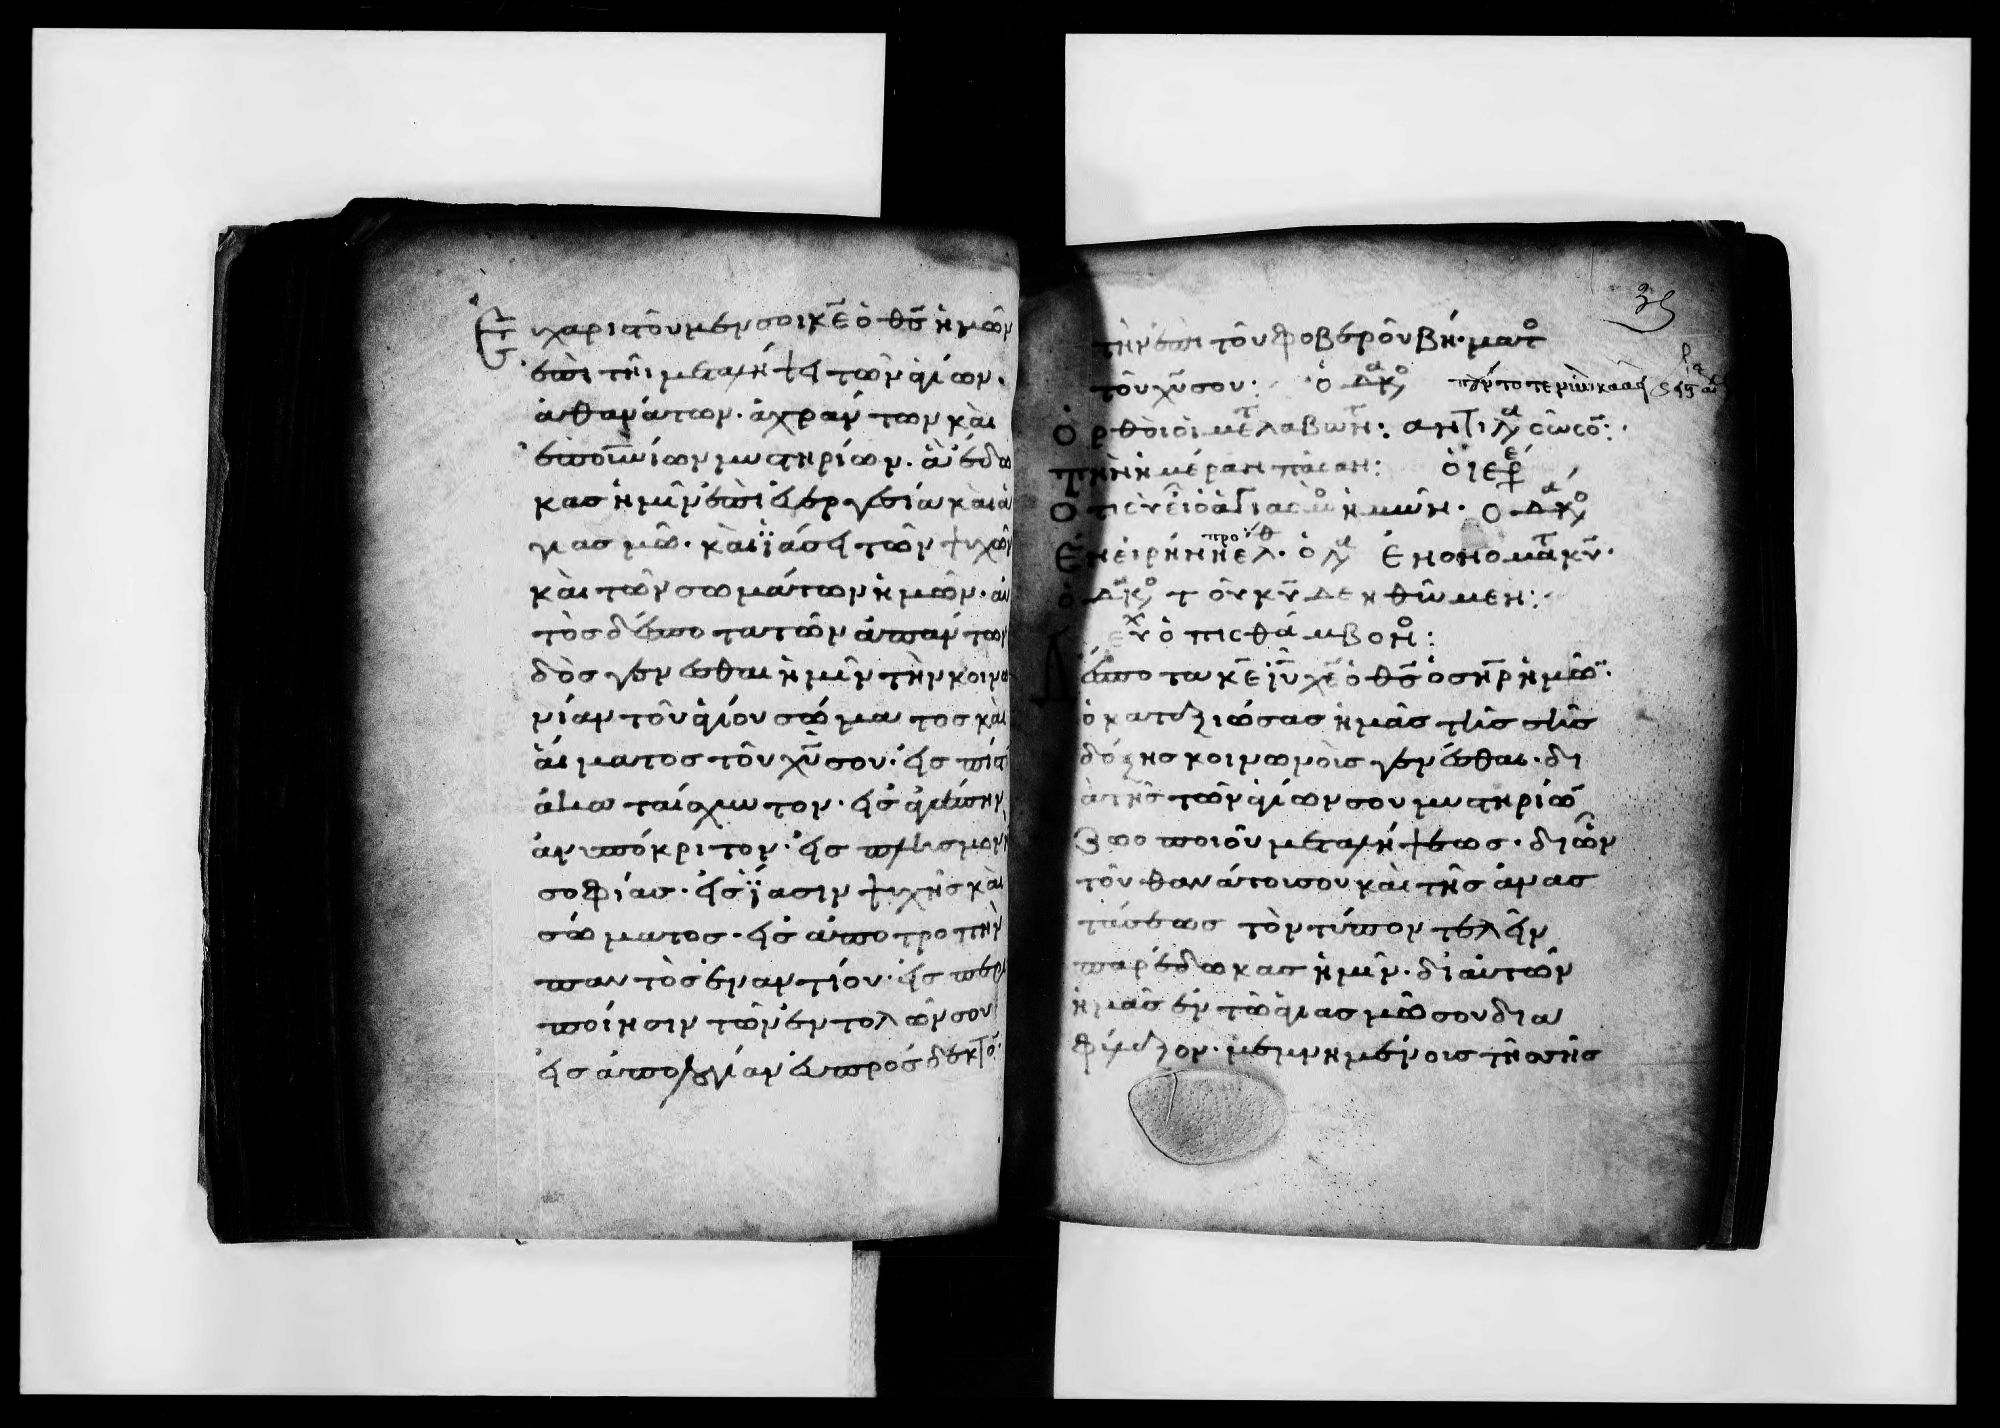 Εὐχαριστοῦμέν σοι κε ὁ θς ἡμῶν
ἐπὶ τῆι μεταλήψει τῶν ἁγίων.
ἀθανάτων. ἀχράντων καὶ
ἐποιωνίων μυστηρίων. ἃ ἔδω
κας ἡμῖν ἐπὶ εὐεργεσία καὶ ἁ
γιασμῶ. καὶ ἰάσει τῶν ψυχῶν
καὶ τῶν σωμάτων ἡμῶν. αὐ
τὸς δέσποτα τῶν ἁπάντων
δὸς γενέσθαι ἡμῖν τὴν κοινω
νίαν τοῦ ἁγίου σώματος καὶ
αἵματος τοῦ χυ σου. εἰς πίστιν
ἀκαταίσχυντον. εἰς ἀγάπην
ἀνυπόκριτον. εἰς πλησμονὴν
σοφίας. εἰς ἴασιν ψυχῆς καὶ
σώματος. εἰς ἀποτροπὴν
παντὸς ἐναντίου. εἰς περι
ποίησιν τῶν ἐντολῶν σου
εἰς ἀπολογίαν εὐπρόσδεκτο
35
τὴν ἐπὶ τοῦ φοβεροῦ βήματο
τοῦ χυ σου: ὁ διακο
Ορθοι οἱ μετλαβωντ: αντιλα σῶσο:
τηνημέραν πᾶσαν: ὁ ἱερε
Οτι σὺ εἶ ὁ ἁγιασμο ἡμῶν. Ο διακο
Ἐν εἰρήνη προελθ. ὁ λα Ἐν ονοματ κυ.
ὁ διακο τοῦ κυ δεηθῶμεν:
εὐχ ὀπισθάμβονο:
Δέσποτα κε ιυ χε ὁ θς ὁ σηρ ἡμῶ.
ὁ καταξιώσας ἡμᾶς τῆς σῆς
δόξης κοινωνοὺς γενέσθαι. δι
ὰ τῆς τῶν ἁγίων σου μυστηρίω
ζωοποιοῦ μεταλήψεως. δι ὧν
τοῦ θανάτοι σου καὶ τῆς ἀνασ
τάσεως τὸν τύπον τελεῖν
παρέδωκας ἡμῖν. δι αὐτῶν
ἡμᾶς ἐν τῶ ἁγιασμῶ σου δια
φύλαξον. μεμνημένοις τῆς σῆς